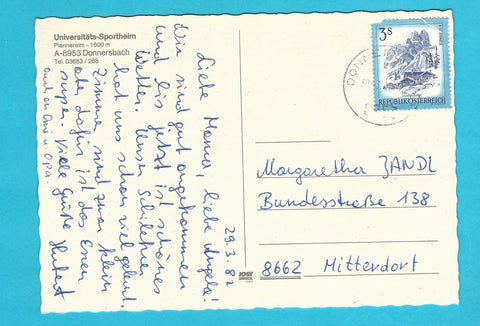 Universitäts-Sportheim
Planneralm - 1600 m
A-8953 Donnersbach
Tel. 03683 / 266
29.3.82
Liebe Mama, liebe Angela!
Wir sind gut angekommen
und bis jetzt ist schönes
Wetter. Unser Schilehrer
hat uns schon viel gelernt.
Zimmer sind zwar klein
aber dafür ist das Essen
super. Viele Grüße Hubert
auch an Omi u. Opa.
3S
REPUBLIK ÖSTERREICH
DONNE
Margaretha ZANDL
Bundesstraße 138
8662 Mitterdorf
JOST
DRUCK